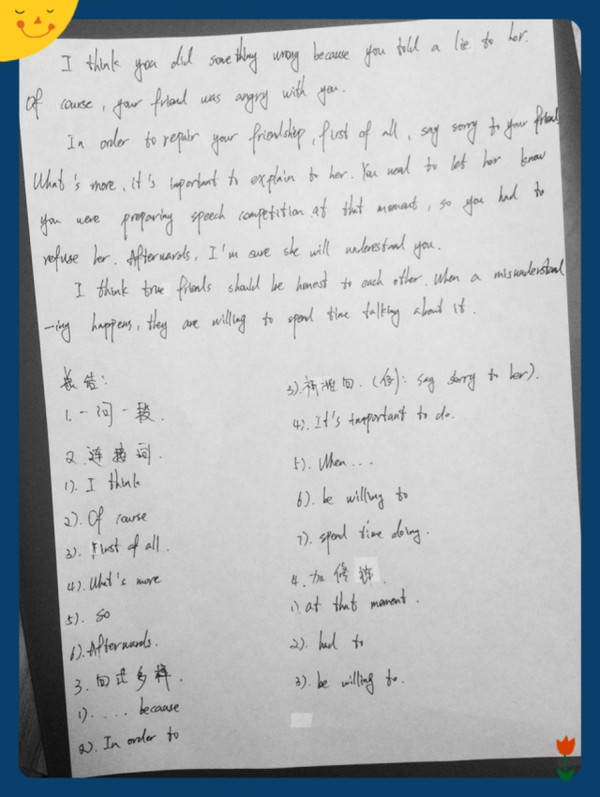 I think you did something wrong because you told a lie to her.
Of course, your friend was angry with you.
In order to repair your friendship, first of all, say sorry to your friend
What's more, it's important to explain to her. You need to let her know
you were preparing speech competition at that moment, so you had to
refuse her. Afterwards, I'm sure she will understand you.
I think true friends should be honest to each other. When a misunderstand
-ing happens, they are willing to spend time talking about it.
总结:
1. 一问一段.
2. 连接词.
1). I think
2). Of course
3). First of all.
4). What's more
5). so
6). Afterwards.
3. 句式多样.
1). .... because
2). In order to
3). 祈使句. (例): say sorry to her).
4). It's important to do.
5). When...
6). be willing to
7). spend time doing.
4. 加
1). at that moment.
2). had to
3). be willing to.